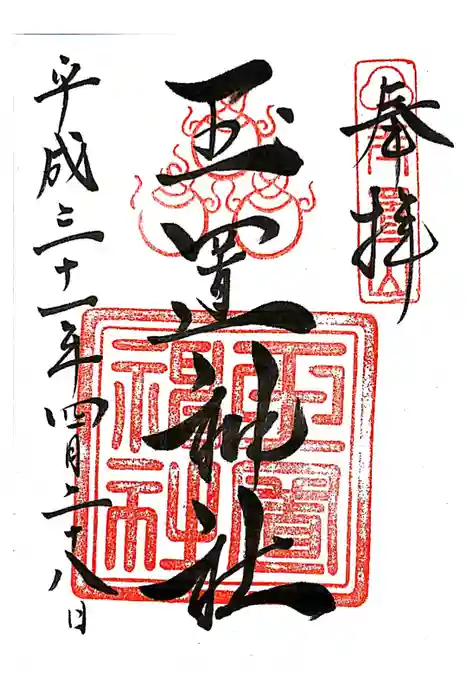 奉拝
玉置神社
平成三十一年四月二十八日
玉置
神社